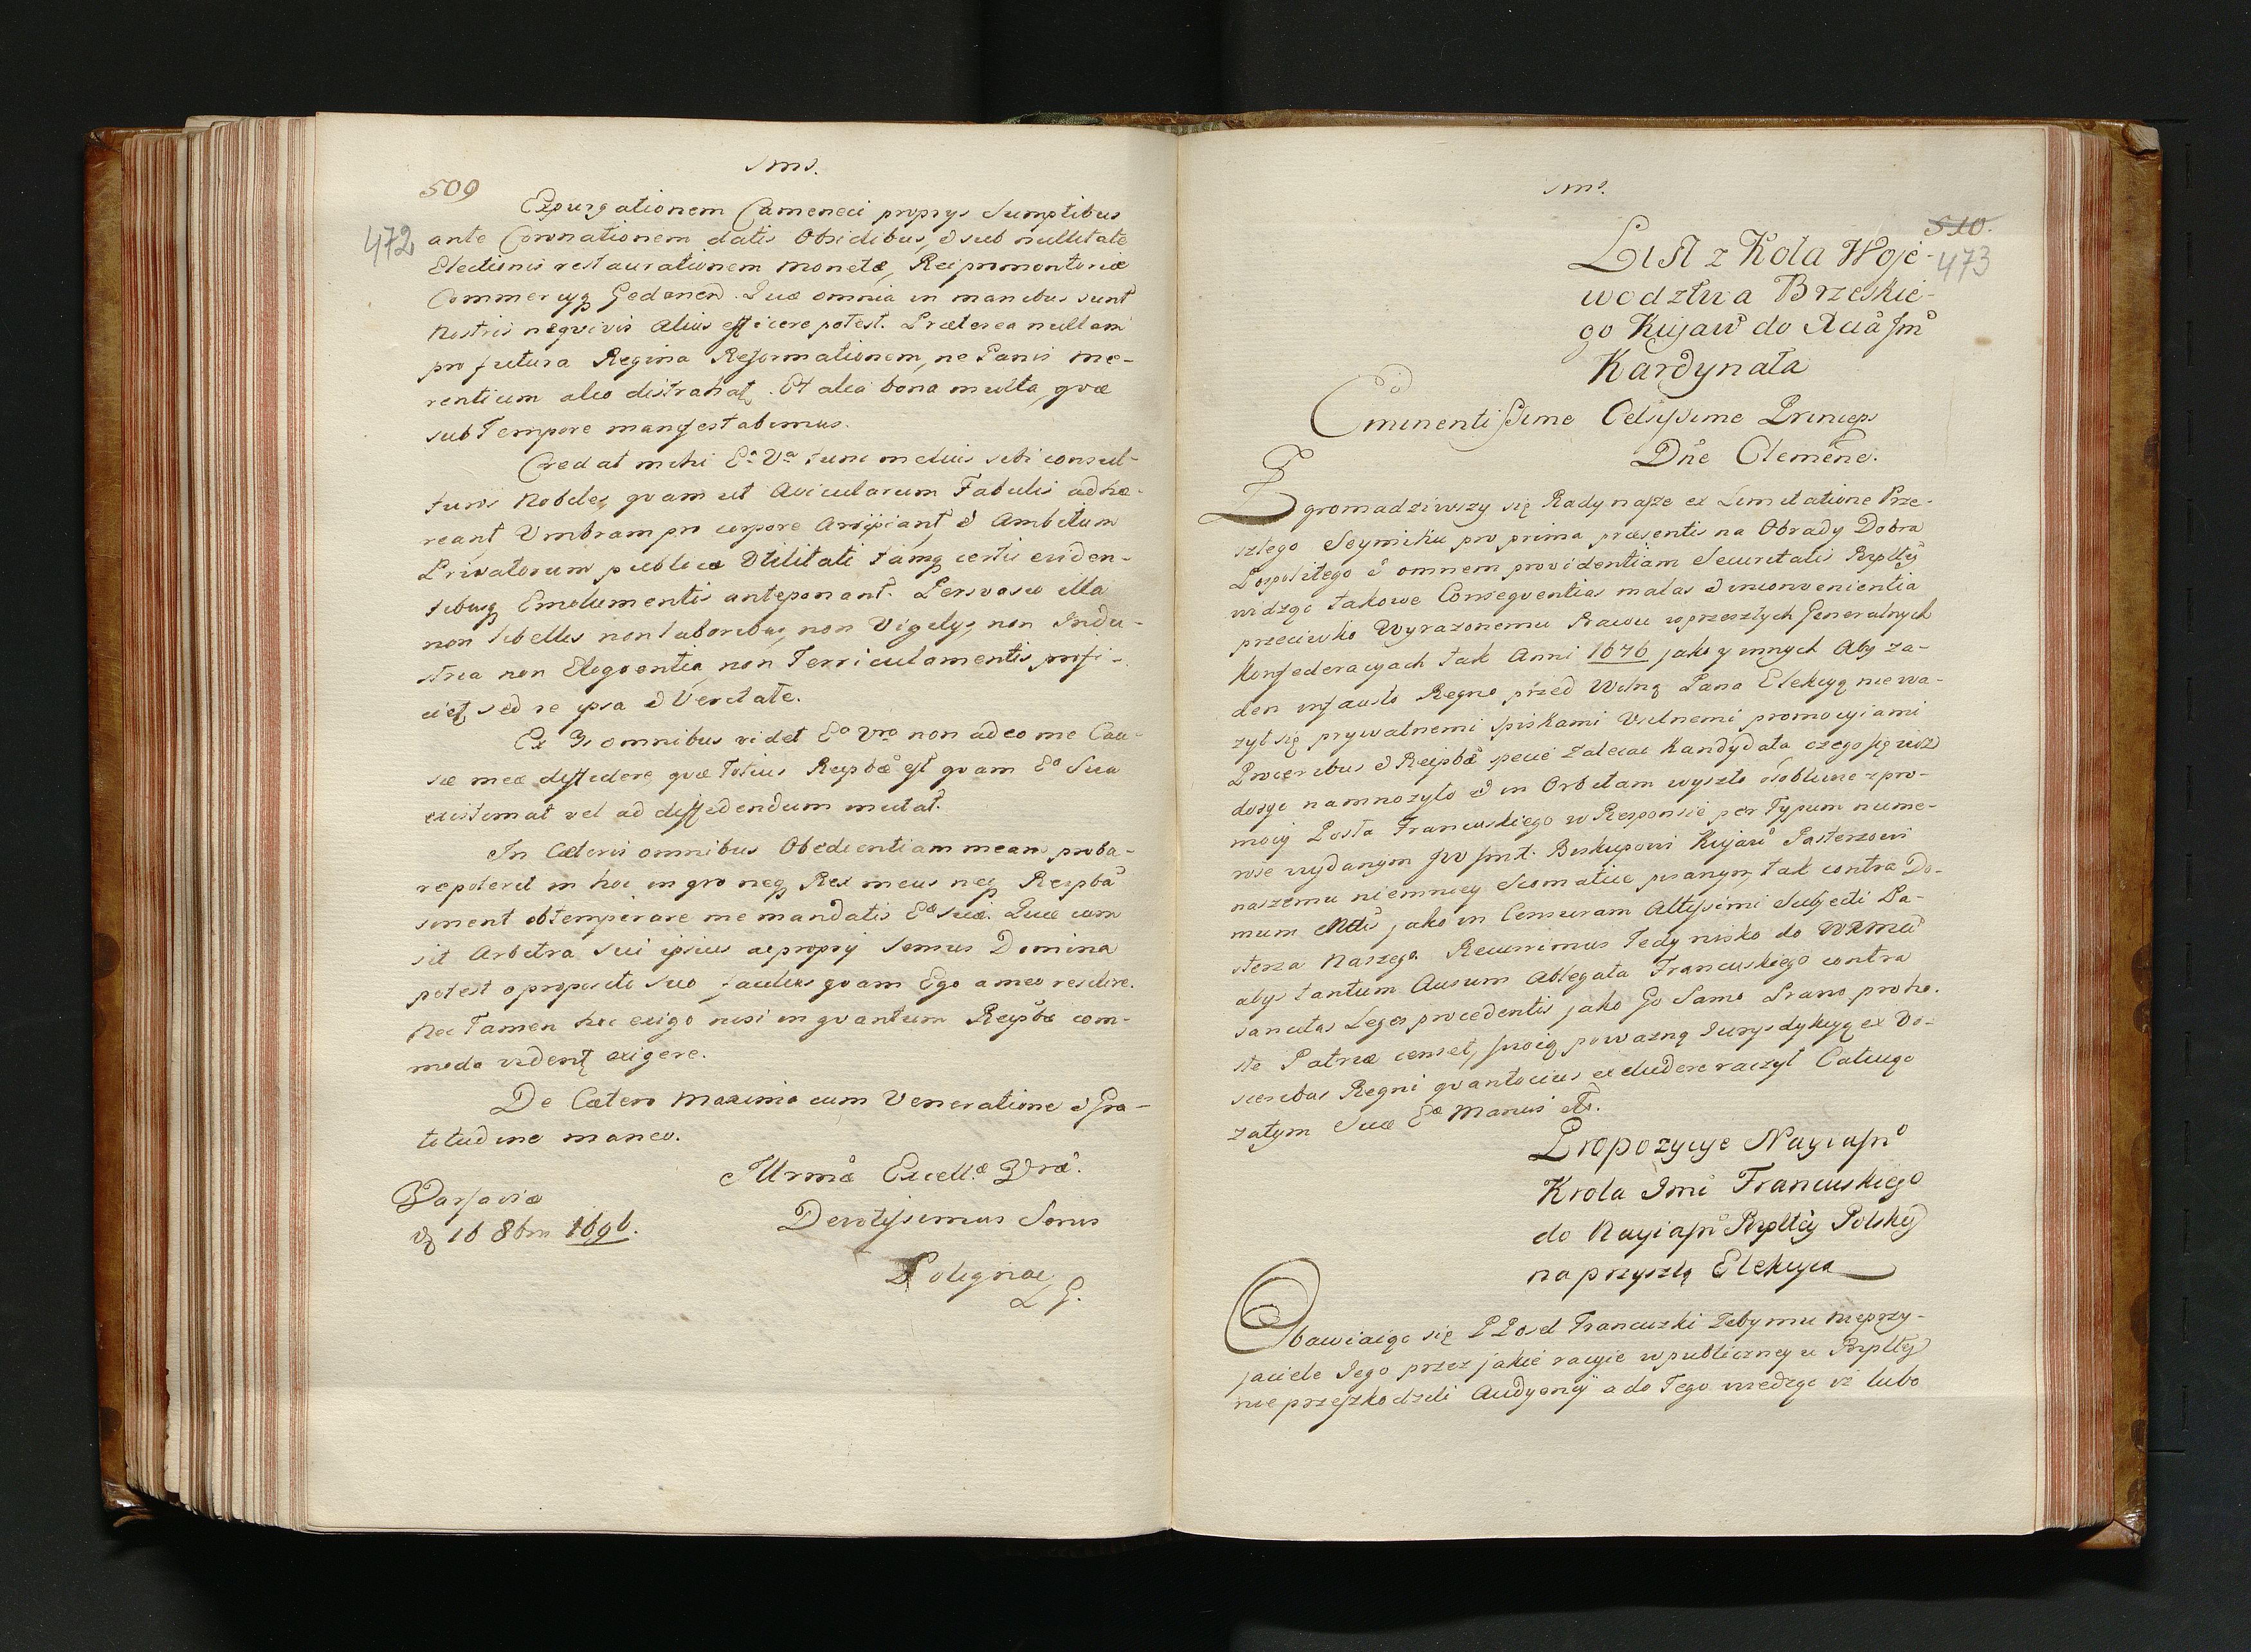 Jms.
509
472
Expurgationem Cameneci proprys Sumptibus
ante Coronationem datis Obsidibus, & sub nullitate
Electionis restaurationem monetæ, Rei promontoriæ
Commercyq Gedanen. Quæ omnia in manibus sunt
nostris neqvivis Alius efficere potest. Præterea nullam
pro futura Regina Reformationem, ne Panis me-
rentium alio distrahat. Et alia bona multa, qvæ
sub Tempore manifestabimus.
Credat mihi Ea Va tunc melius sibi consul-
turos Nobiles, qvam ut Avicularum Fabulis adhæ-
reant Umbram pro corpore Arripiant, & Ambitum
Privatorum publicæ Utilitati tamq certis eviden-
tibusq Emolumentis anteponant. Persvasio illa
non libellis non laboribus, non Vigilys, non Indu-
stria non Eloqventia, non Terriculamentis profi-
ciet, sed re ipsa & Veritate.
Ex Is omnibus videt Ea Vra non adeo me Cau-
sæ meæ diffidere, qvæ Totius Reipbæ est qvam Ea Sua
existimat vel ad diffidendum invitat.
In Cæteris omnibus Obedientiam meam proba-
re poterit in hoc in qvo neq Rex meus neq Reipba
sinent obtemperare me mandatis Eæ suæ. Quæ cum
sit Arbitra Sui ipsius ac proprij Sensus Domina
potest a proposito Suo facilius qvam Ego a meo resilire.
Nec Tamen hoc exigo nisi in qvantum Reipbæ com-
moda vident exigere.
De Cætero Maxima cum Veneratione & Gra-
titudine maneo.
Illrmæ Excell.æ Vræ.
Varsaviæ
D 16 8bris 1696.
Devotissimus Servus
Polignac
L G.
Jms.
510.
473
List z Koła Woje-
wodztwa Brzeskie-
go Kujaw do Xcia Jm
Kardynała
Eminentissime Celsissime Princeps
Dne Clemene.
Zgromadziwszy się Rady nasze ex Limitatione Prze-
szłego Seymiku pro prima præsentis na Obrady Dobra
Pospolitego & omnem providentiam Securitatis Rplltey
widząc takowe Conseqventias malas & inconvenientia
przeciwko Wyrazonemu Prawu w przeszłych Generalnych
Konfederacyach tak Anni 1676 jako y innych Aby za-
den infausto Regno przed Wolną Pana Elekcyą nie wa-
zył się prywatnemi Spiskami Usilnemi promocyiami
Proceribus & Reipbæ pewie Zalecac Kandydata czego się iusz
dosyc namnozyło & in Orbitam wyszło osobliwie z pro-
mocij Posła Francuskiego w Responsie per Typum nume-
rose wydanym Jw Jmt. Biskupowi Kujaw Pasterzowi
naszemu niemniey Scomatice pisanym, tak contra Do-
mum Nrtis, jako in Censuram Altissimi Subjecti Pa-
sterza naszego. Recurrimus Tedy nisko do WXMci
aby tantum Ausum Ablegata Francuskiego contra
sancitas Leges procedentis jako Go Samo Prawo pro ho-
ste Patriæ censet, swoią powazną Jurysdykcyą ex Vi-
sceribus Regni qvantocius excludere raczył Całuiąc
zatym Suæ Eæ Manus etc.
Propozycye Nayiasn
Krola Jmi Francuskiego
do Nayiasn Rplltey Polskiey
na przyszłą Elekcyą
Obawiaiąc się P Poseł Francuzki Zeby mu nieprzy-
jaciele Jego przez jakie racyie w publiczney u Rplltey
nie przeszkodzili Audyencij a do Tego widząc iz lubo